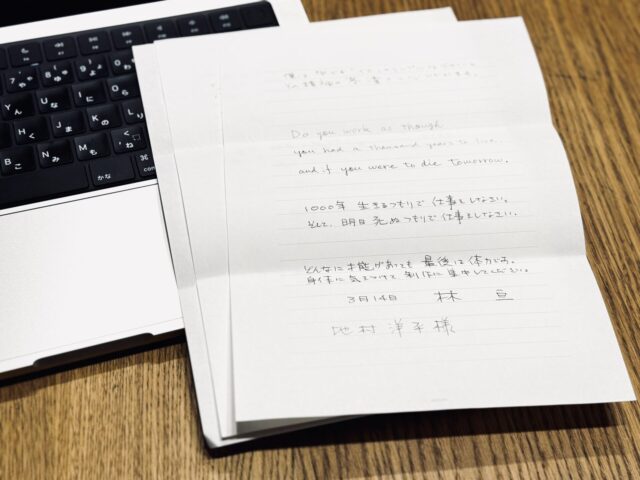 7 や 8 ゆ 9 よ 0
Y ん U な I に O ら
H く J ま K の L
B こ N み M も ね
かな ⌘
Do you work as though
you had a thousand years to live
and if you were to die tomorrow.
1000年 生きるつもりで 仕事をしなさい。
そして、明日 死ぬつもりで仕事をしなさい。
どんなに才能があっても 最後は体力です。
身体に気をつけて 制作に集中してください。
3月14日 林 亘
地村 洋平様